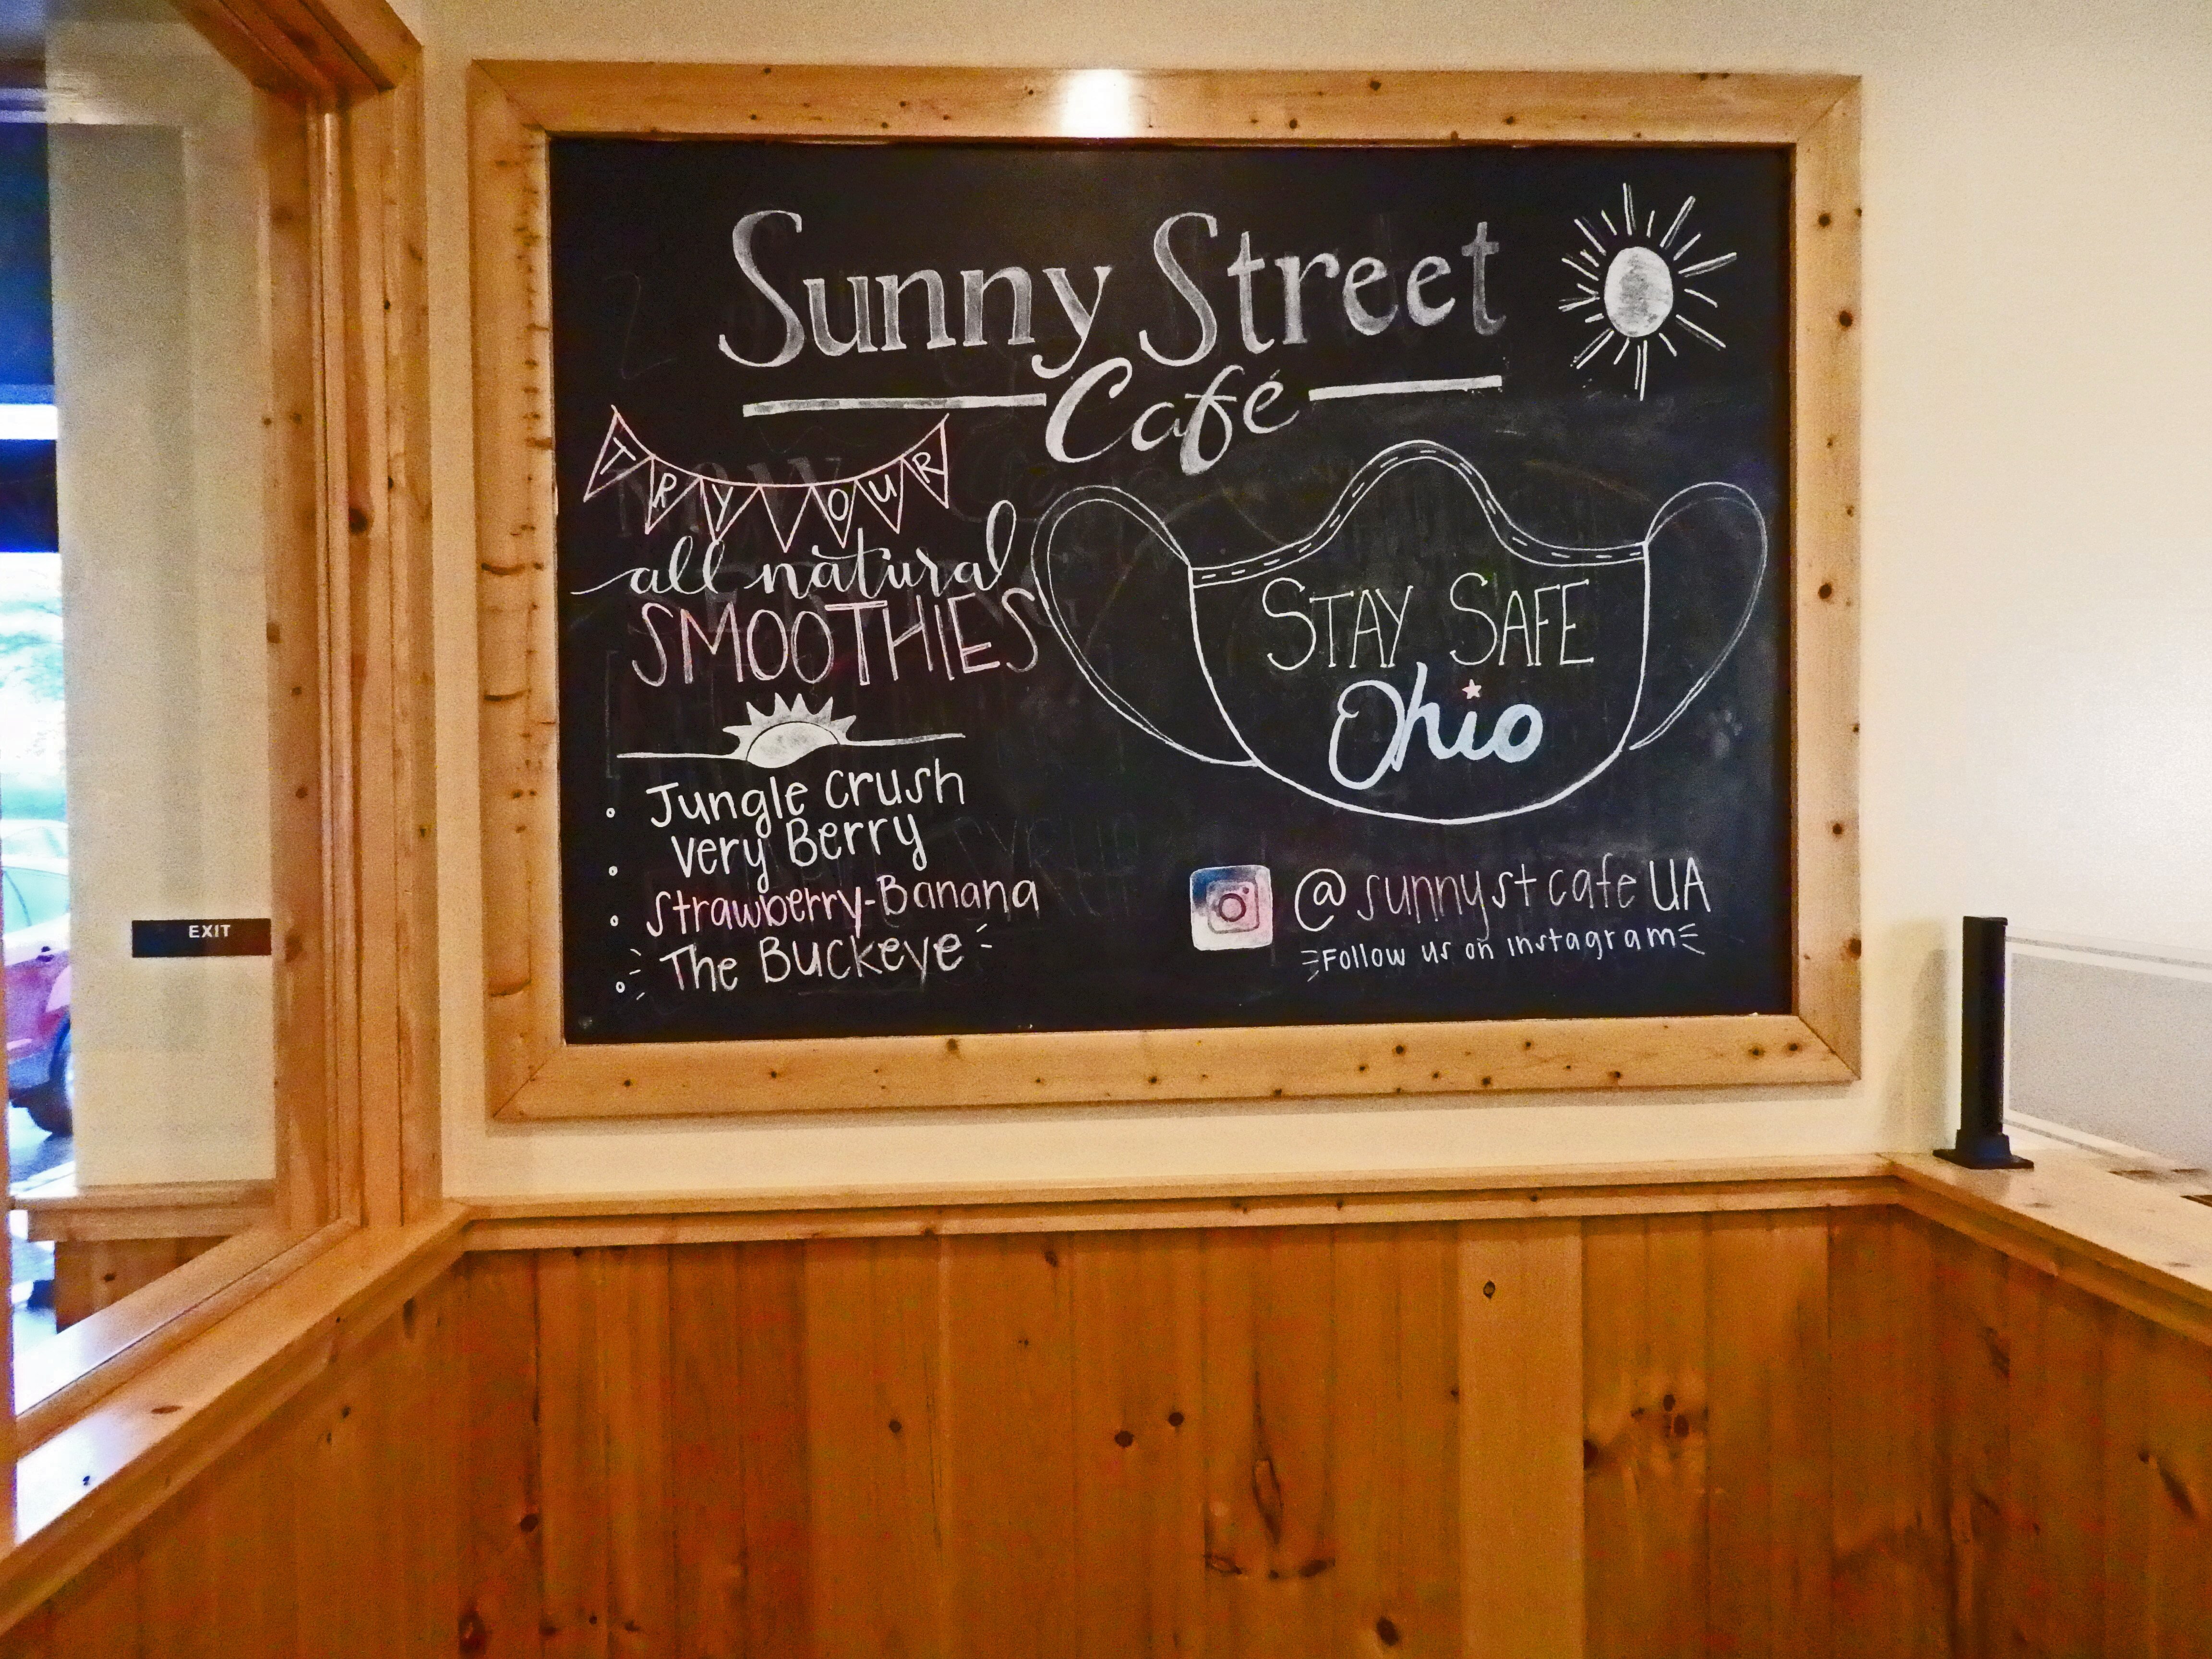 Sunny Street
Café
TRY OUR
all natural
SMOOTHIES
Jungle Crush
Very Berry
Strawberry-Banana
The Buckeye
STAY SAFE
Ohio
@sunnystcafeUA
Follow us on instagram
EXIT